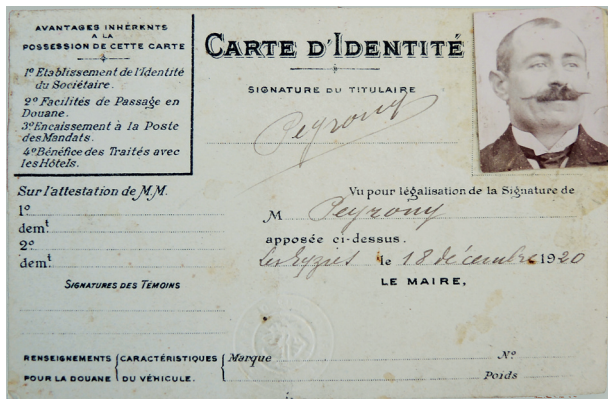 AVANTAGES INHÉRENTS
A LA
POSSESSION DE CETTE CARTE
1º Etablissement de l'Identité
du Sociétaire.
2º Facilités de Passage en
Douane.
3º Encaissement à la Poste
des Mandats.
4º Bénéfice des Traités avec
les Hôtels.
CARTE D'IDENTITÉ
SIGNATURE DU TITULAIRE
Peyrony
Sur l'attestation de M.M.
1º
demt
2º
demt
SIGNATURES DES TÉMOINS
Vu pour légalisation de la Signature de
M Peyrony
apposée ci-dessus.
Les Eyzies le 18 décembre 1920
LE MAIRE,
RENSEIGNEMENTS POUR LA DOUANE
CARACTÉRISTIQUES DU VÉHICULE.
Marque Nº
Poids